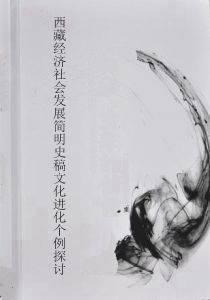 西藏经济社会发展简明史稿文化进化个例探讨